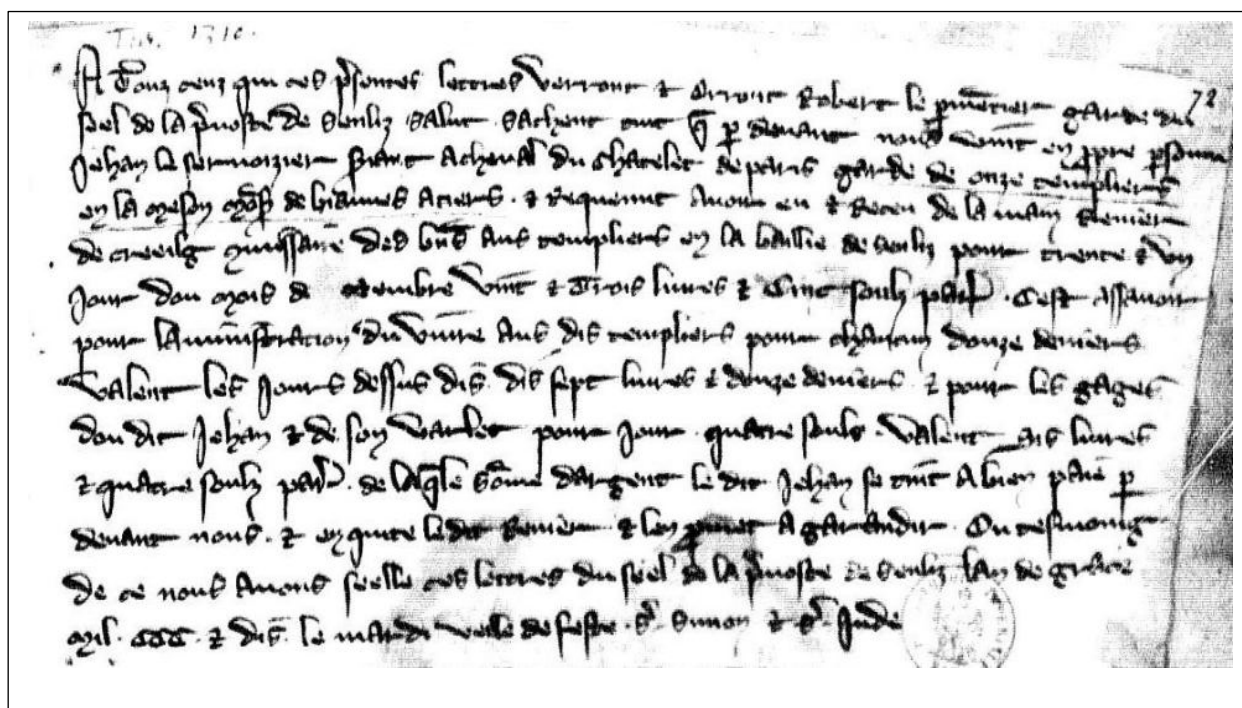 1310.
72
A Touz ceuz qui ces p̃sentes lettres verront & orront Robert le garde du
seel de la p̃voste de Senliz salut sachent tuit q̃ p̱ devant nous vint en p̱pre p̱sonne
Jehan le sergant acheval du chatelet de paris garde de onze templiers
en la meson de biauves atiers & Requenut avoir eu & Receu de la main Renier
de creeilg aus templiers en la baillie de senliz pour trente & un
jour dou mois de vint & trois livres & cinc soulz par̃. C'est assavoir
pour laministracion du vivre aus dis templiers pour chascun douze deniers
valent les jours dessus dis dis sept livres & douze deniers & pour les gages
dou dit Jehan & de son varlet pour jour quatre souls valent sis livres
& quatre soulz par̃. de laq̃le sõme dargent le dit Jehan se tint a bien paié p̱
devant nous & en quite ledit Renier & len p̱met a garandir Ou tesmoing
de ce nous avons seelle ces lettres du seel de la p̃voste de Senliz lan de grace
mil. CCC. & dis. le mardi veile de feste. S̃. Simon & S̃. Jude